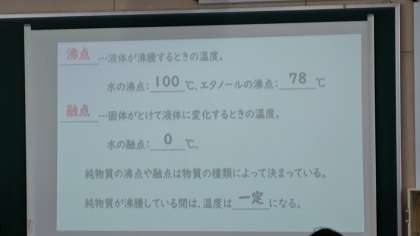 沸点…液体が沸騰するときの温度。
水の沸点：100℃、エタノールの沸点：78℃
融点…固体がとけて液体に変化するときの温度。
水の融点：0℃。
純物質の沸点や融点は物質の種類によって決まっている。
純物質が沸騰している間は、温度は一定になる。